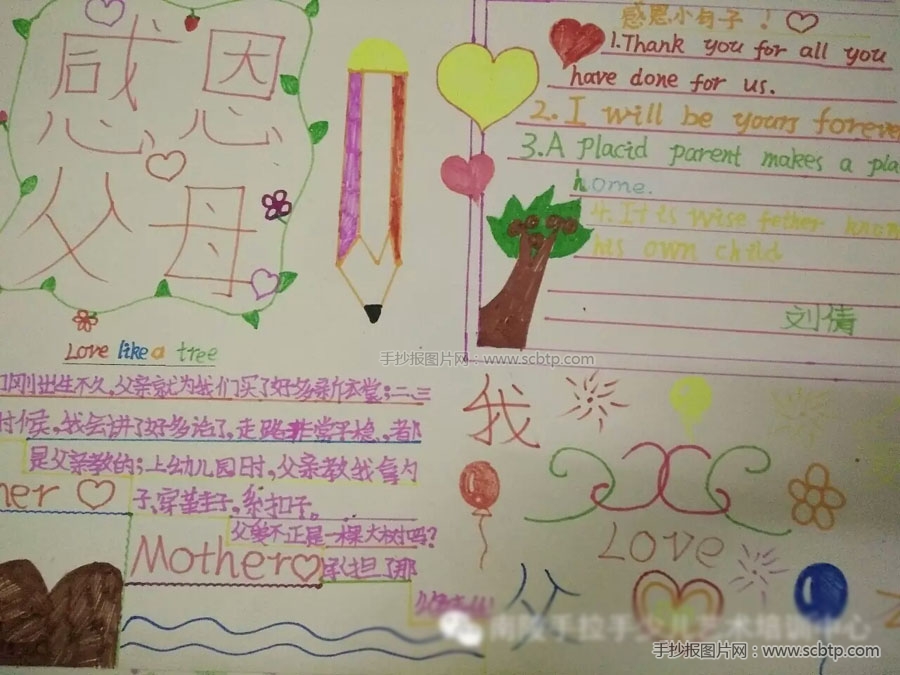 感恩
父母
Love like a tree
感恩小句子!
1.Thank you for all you
have done for us.
2.I will be yours foreve
3.A Placid parent makes a pla
home.
4.It is wise father know
his own child
刘倩
手抄报图片网:www.scbtp.com
刚出生不久,父亲就为我们买了好多新衣裳;二三
时候,我会讲了好多话了,走路非常平稳,都
是父亲教的;上幼儿园时,父亲教我拿勺
子、穿鞋子、系扣子。
父亲不正是一棵大树吗?
her
Mother
承担了那
我
Love
父
南陵手拉手少儿艺术培训中心
手抄报图片网:www.scbtp.com